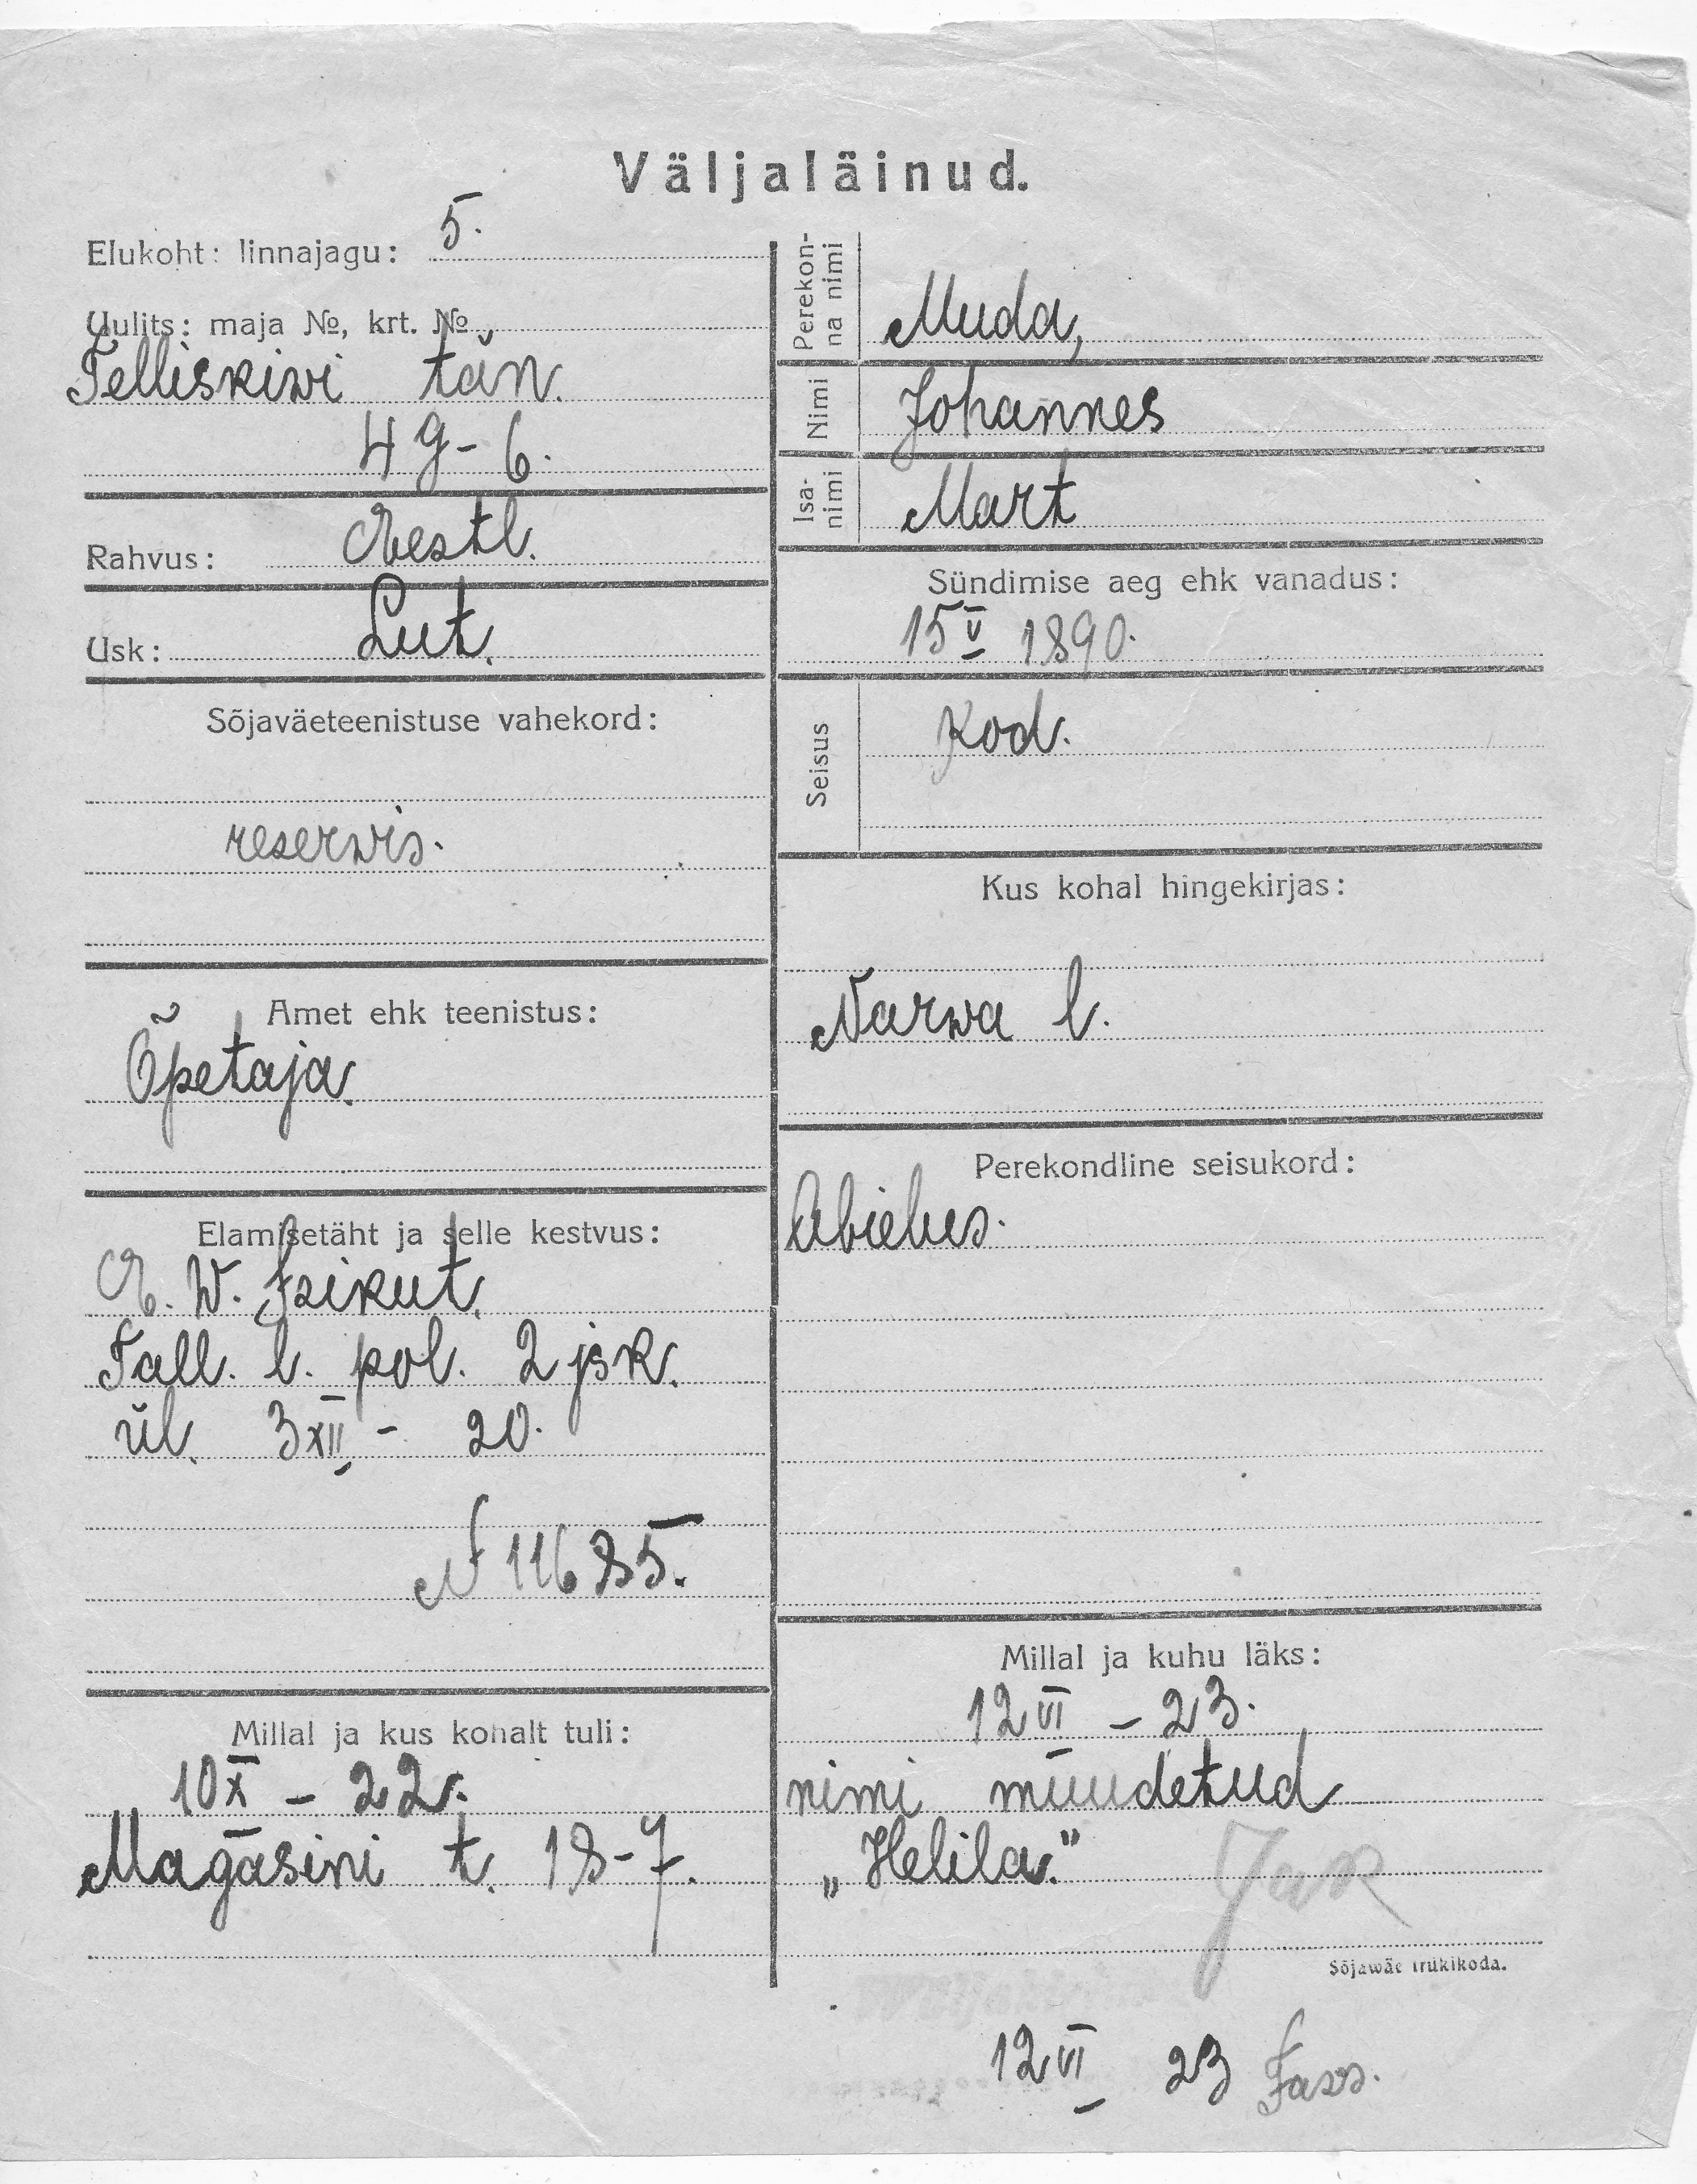 Väljaläinud.
Elukoht: linnajagu: 5.
Uulits: maja №, krt. №
Telliskiwi tän.
49-6.
Rahvus: Eestl.
Usk: Lut.
Sõjaväeteenistuse vahekord:
reserwis.
Amet ehk teenistus:
Õpetaja.
Elamisetäht ja selle kestvus:
E. W. Isikut.
Tall. l. pol. 2 jsk.
ül. 3 XII - 20.
N 11685.
Millal ja kus kohalt tuli:
10 X - 22.
Magasini t. 18-7.
Perekonna nimi
Muda,
Nimi
Johannes
Isanimi
Mart
Sündimise aeg ehk vanadus:
15 V 1890.
Seisus
Kod.
Kus kohal hingekirjas:
Narwa l.
Perekondline seisukord:
Abielus.
Millal ja kuhu läks:
12 VI - 23.
nimi muudetud
„Helila."
Sõjawäe trükikoda.
12 VI 23